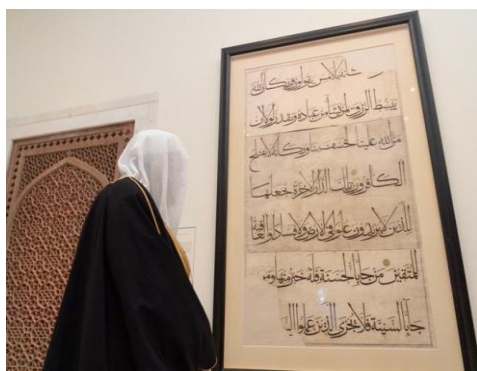 مكانه بالامس يقولون ويكان الله
يبسط الرزق لمن يشاء من عباده ويقدر لولا ان
من الله علينا لخسف بنا ويكانه لا يفلح
الكافرون تلك الدار الاخرة نجعلها
للذين لا يريدون علوا في الارض ولا فسادا والعاقبة
للمتقين من جاء بالحسنة فله خير منها ومن
جاء بالسيئة فلا يجزى الذين عملوا